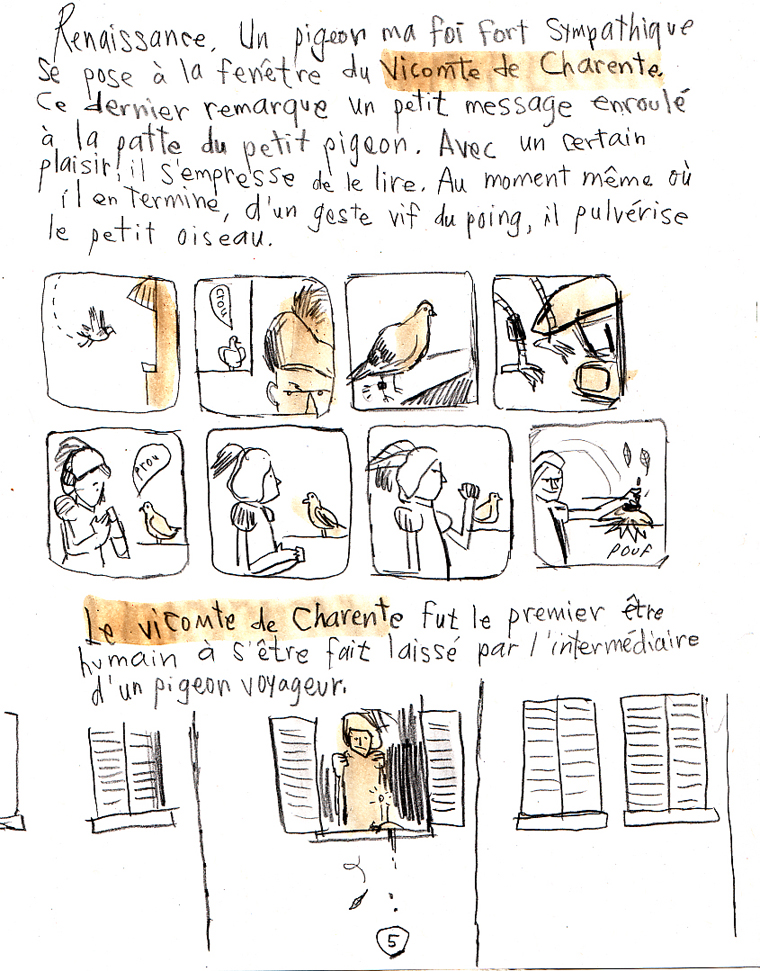 Renaissance. Un pigeon ma foi fort sympathique
se pose à la fenêtre du Vicomte de Charente.
Ce dernier remarque un petit message enroulé
à la patte du petit pigeon. Avec un certain
plaisir, il s'empresse de le lire. Au moment même où
il en termine, d'un geste vif du poing, il pulvérise
le petit oiseau.
crou
prou
pouf
Le vicomte de Charente fut le premier être
humain à s'être fait laissé par l'intermédiaire
d'un pigeon voyageur.
5